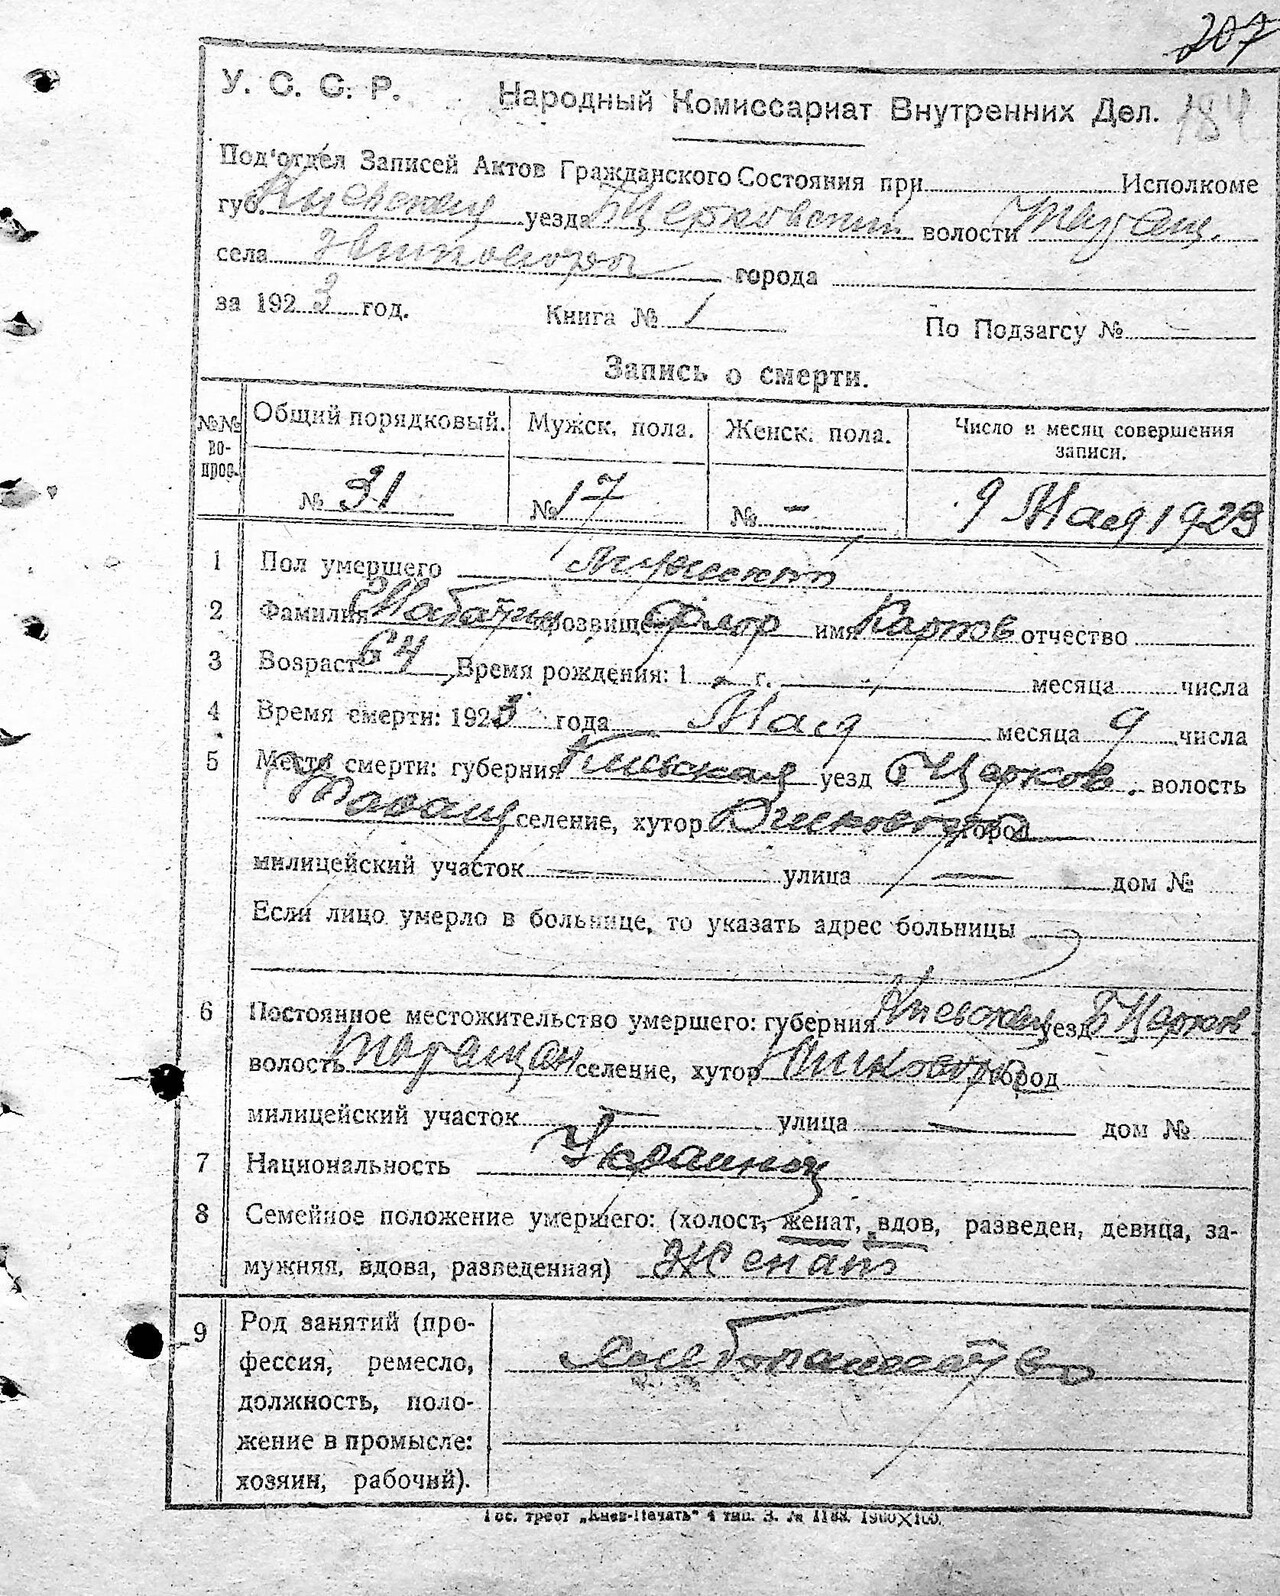 207
У. С. С. Р. Народный Комиссариат Внутренних Дел. 184
Под'отдел Записей Актов Гражданского Состояния при Исполкоме
губ. Киевская уезда БЦерковский волости Таращ.
села города
за 1923 год. Книга № 1 По Подзагсу №
Запись о смерти.
№№ вопрос. Общий порядковый. Мужск. пола. Женск. пола. Число и месяц совершения записи.
№ 31 № 17 № - 9 Мая 1923
1 Пол умершего мужской
2 Фамилия прозвище имя отчество
3 Возраст 64 Время рождения: 1 - г. месяца числа
4 Время смерти: 1923 года Мая месяца 9 числа
5 Место смерти: губерния Киевская уезд БЦерков. волость
Таращ селение, хутор город
милицейский участок — улица — дом №
Если лицо умерло в больнице, то указать адрес больницы
6 Постоянное местожительство умершего: губерния Киевская уезд БЦерков
волость Таращан селение, хутор город
милицейский участок — улица — дом №
7 Национальность Украинец
8 Семейное положение умершего: (холост, женат, вдов, разведен, девица, за-
мужняя, вдова, разведенная) Женатъ
9 Род занятий (про-
фессия, ремесло, хлебопашество
должность, поло-
жение в промысле:
хозяин, рабочий).
Гос. трест „Киев-Печать“ 4 тип. З. № 1188. 1900×100.